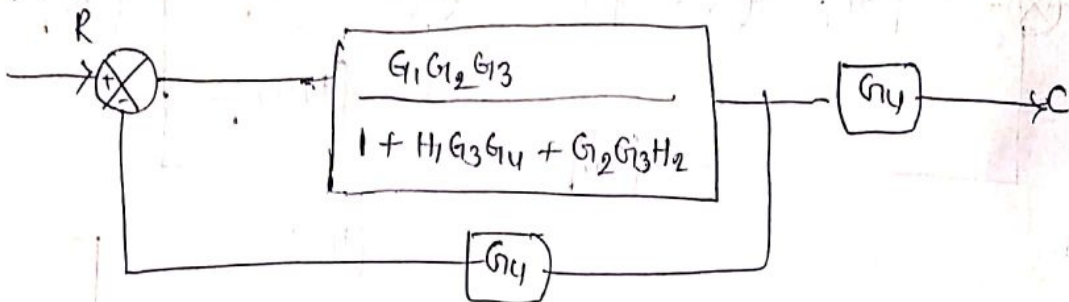 R
+
-
G1G2G3
1 + H1G3G4 + G2G3H2
G4
C
G4